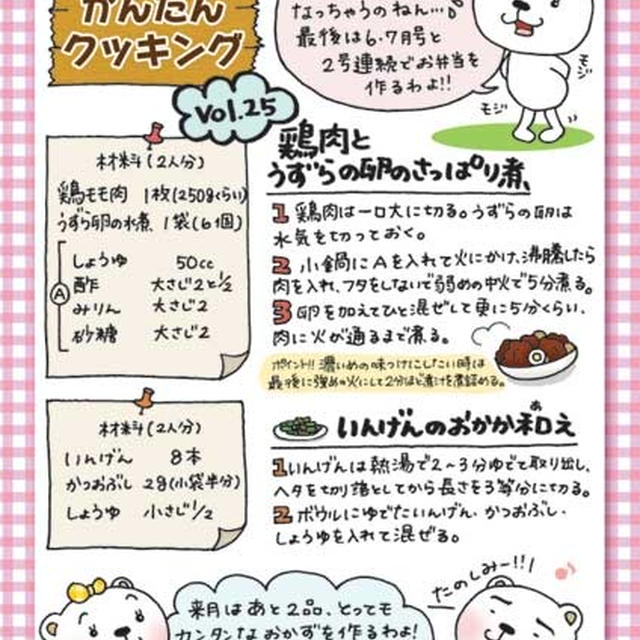 かんたん
クッキング
なっちゃうのねん…
最後は6・7月号と
2号連続でお弁当を
作るわよ!!
モジ
モジ
Vol.25
鶏肉と
うずらの卵のさっぱり煮
材料(2人分)
鶏モモ肉 1枚(250gくらい)
うずら卵の水煮 1袋(6個)
A
しょうゆ 50cc
酢 大さじ2と1/2
みりん 大さじ2
砂糖 大さじ2
1 鶏肉は一口大に切る。うずらの卵は
水気を切っておく。
2 小鍋にAを入れて火にかけ、沸騰したら
肉を入れ、フタをしないで弱めの中火で5分煮る。
3 卵を加えてひと混ぜして更に5分くらい、
肉に火が通るまで煮る。
ポイント!! 濃いめの味つけにしたい時は
最後に強めの火にして2分ほど漬け煮詰める。
いんげんのおかか和え
あ
材料(2人分)
いんげん 8本
かつおぶし 2g(小袋半分)
しょうゆ 小さじ1/2
1 いんげんは熱湯で2～3分ゆでて取り出し、
ヘタを切り落としてから長さを3等分に切る。
2 ボウルにゆでたいんげん、かつおぶし、
しょうゆを入れて混ぜる。
来月はあと2品、とっても
カンタンなおかずを作るわよ!
たのしみー!!